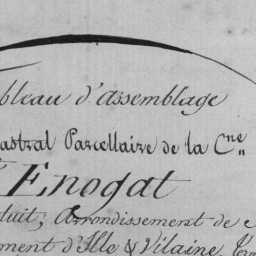 bleau d'assemblage
astral Parcellaire de la Cne
Enogat
duit, Arrondissement de
ment d'Ille & Vilaine